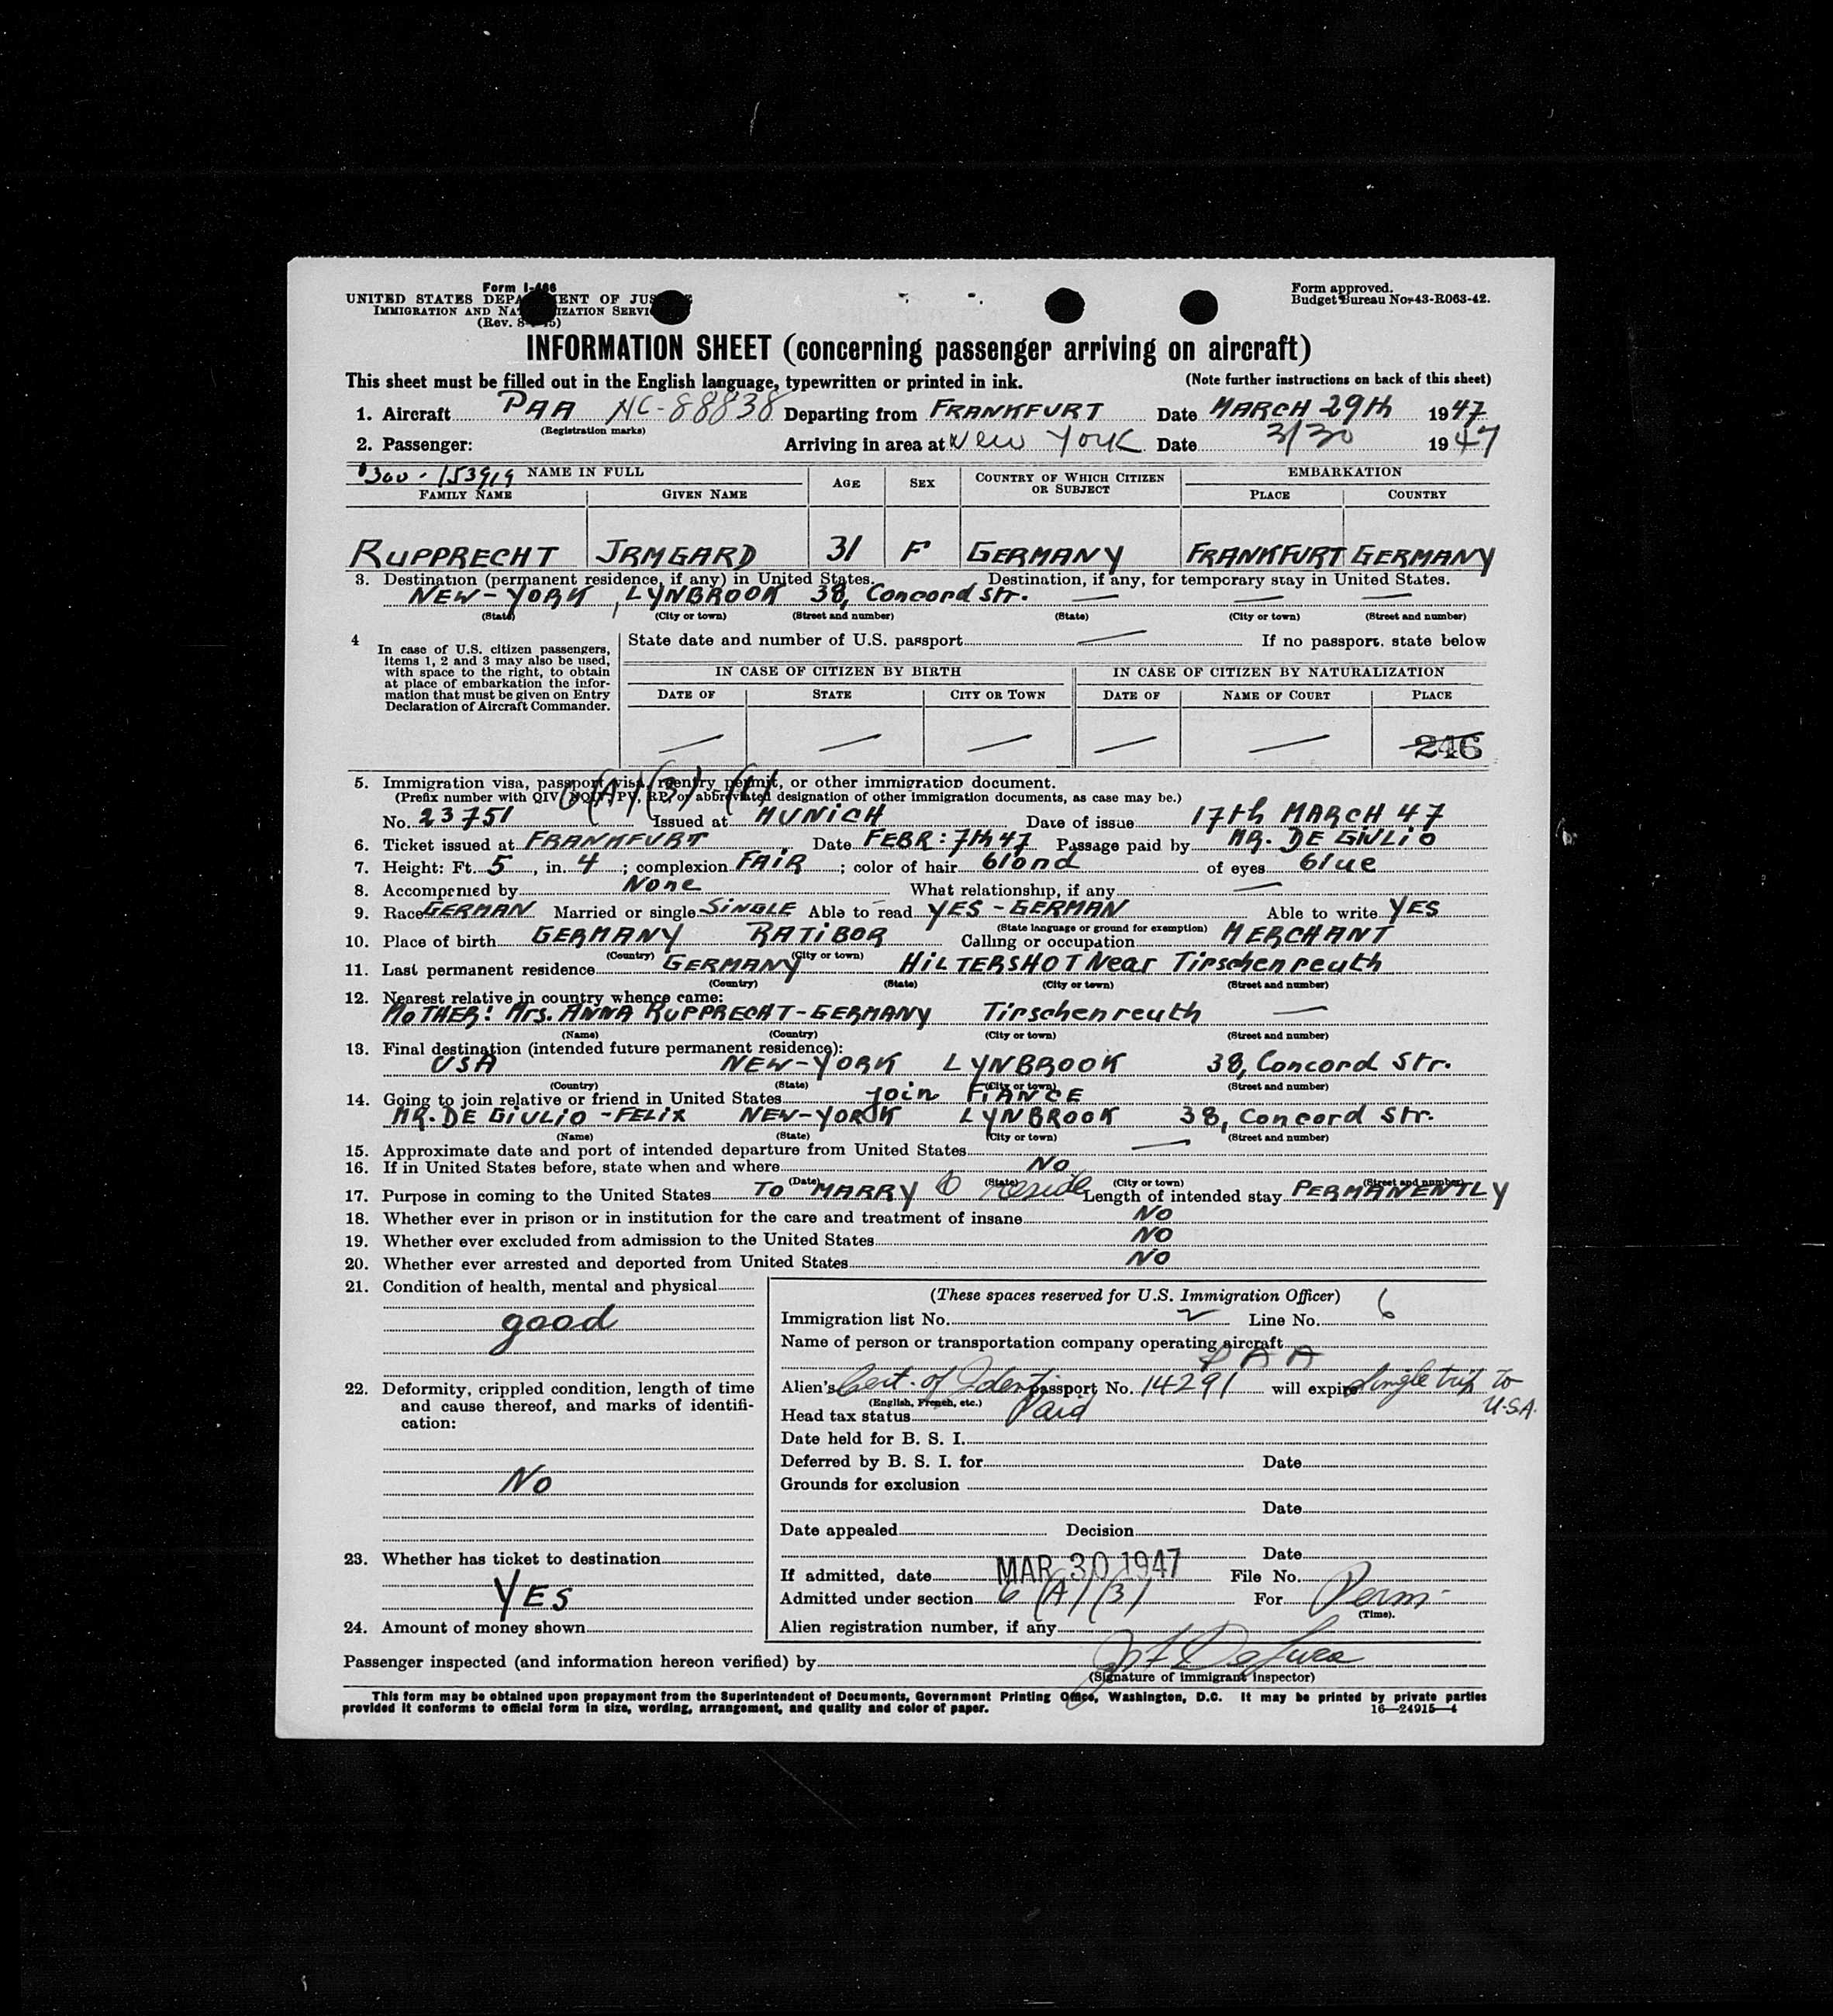 Form I-466
UNITED STATES DEPARTMENT OF JUSTICE
IMMIGRATION AND NATURALIZATION SERVICE
(Rev. 8- -45)
Form approved.
Budget Bureau No. 43-R063-42.
INFORMATION SHEET (concerning passenger arriving on aircraft)
This sheet must be filled out in the English language, typewritten or printed in ink. (Note further instructions on back of this sheet)
1. Aircraft PAA NC-88838 Departing from FRANKFURT Date MARCH 29th 1947
(Registration marks)
2. Passenger: Arriving in area at New York Date 3/30 1947
300-153919 NAME IN FULL AGE SEX COUNTRY OF WHICH CITIZEN OR SUBJECT EMBARKATION
FAMILY NAME GIVEN NAME PLACE COUNTRY
RUPPRECHT JRMGARD 31 F GERMANY FRANKFURT GERMANY
3. Destination (permanent residence, if any) in United States. Destination, if any, for temporary stay in United States.
NEW-YORK, LYNBROOK 38, Concord Str. — — —
(State) (City or town) (Street and number) (State) (City or town) (Street and number)
4 In case of U.S. citizen passengers, items 1, 2 and 3 may also be used, with space to the right, to obtain at place of embarkation the information that must be given on Entry Declaration of Aircraft Commander.
State date and number of U.S. passport — If no passport. state below
IN CASE OF CITIZEN BY BIRTH IN CASE OF CITIZEN BY NATURALIZATION
DATE OF STATE CITY OR TOWN DATE OF NAME OF COURT PLACE
— — — — — 246
5. Immigration visa, passport visa, reentry permit, or other immigration document.
6(A)(3) (1)
(Prefix number with QIV, NQIV, PV, RP, or abbreviated designation of other immigration documents, as case may be.)
No. 23751 Issued at MUNICH Date of issue 17th MARCH 47
6. Ticket issued at FRANKFURT Date FEBR: 7th 47 Passage paid by MR. DE GIULIO
7. Height: Ft. 5, in. 4; complexion FAIR; color of hair blond of eyes blue
8. Accompenied by None What relationship, if any —
9. Race GERMAN Married or single SINGLE Able to read YES - GERMAN Able to write YES
(State language or ground for exemption)
10. Place of birth GERMANY RATIBOR Calling or occupation MERCHANT
(Country) (City or town)
11. Last permanent residence GERMANY HILTERSHOT Near Tirschenreuth
(Country) (State) (City or town) (Street and number)
12. Nearest relative in country whence came:
MOTHER: Mrs. ANNA RUPPRECHT-GERMANY Tirschenreuth —
(Name) (Country) (City or town) (Street and number)
13. Final destination (intended future permanent residence):
USA NEW-YORK LYNBROOK 38, Concord Str.
(Country) (State) (City or town) (Street and number)
14. Going to join relative or friend in United States Join FIANCE
MR. DE GIULIO - FELIX NEW-YORK LYNBROOK 38, Concord Str.
(Name) (State) (City or town) (Street and number)
15. Approximate date and port of intended departure from United States —
16. If in United States before, state when and where No
(Date) (State) (City or town) (Street and number)
17. Purpose in coming to the United States TO MARRY & Reside Length of intended stay PERMANENTLY
18. Whether ever in prison or in institution for the care and treatment of insane NO
19. Whether ever excluded from admission to the United States NO
20. Whether ever arrested and deported from United States NO
21. Condition of health, mental and physical
good
22. Deformity, crippled condition, length of time and cause thereof, and marks of identification:
No
23. Whether has ticket to destination
YES
24. Amount of money shown
(These spaces reserved for U.S. Immigration Officer)
Immigration list No. 2 Line No. 6
Name of person or transportation company operating aircraft
PAA
Alien's Cert. of Ident passport No. 14291 will expire Single trip to U.S.A.
(English, French, etc.)
Head tax status Paid
Date held for B. S. I.
Deferred by B. S. I. for Date
Grounds for exclusion
Date
Date appealed Decision
Date
If admitted, date MAR 30 1947 File No.
Admitted under section 6 (A) (3) For Perm-
(Time).
Alien registration number, if any
Passenger inspected (and information hereon verified) by
(Signature of immigrant inspector)
This form may be obtained upon prepayment from the Superintendent of Documents, Government Printing Office, Washington, D.C. It may be printed by private parties
provided it conforms to official form in size, wording, arrangement, and quality and color of paper. 16—24915-4